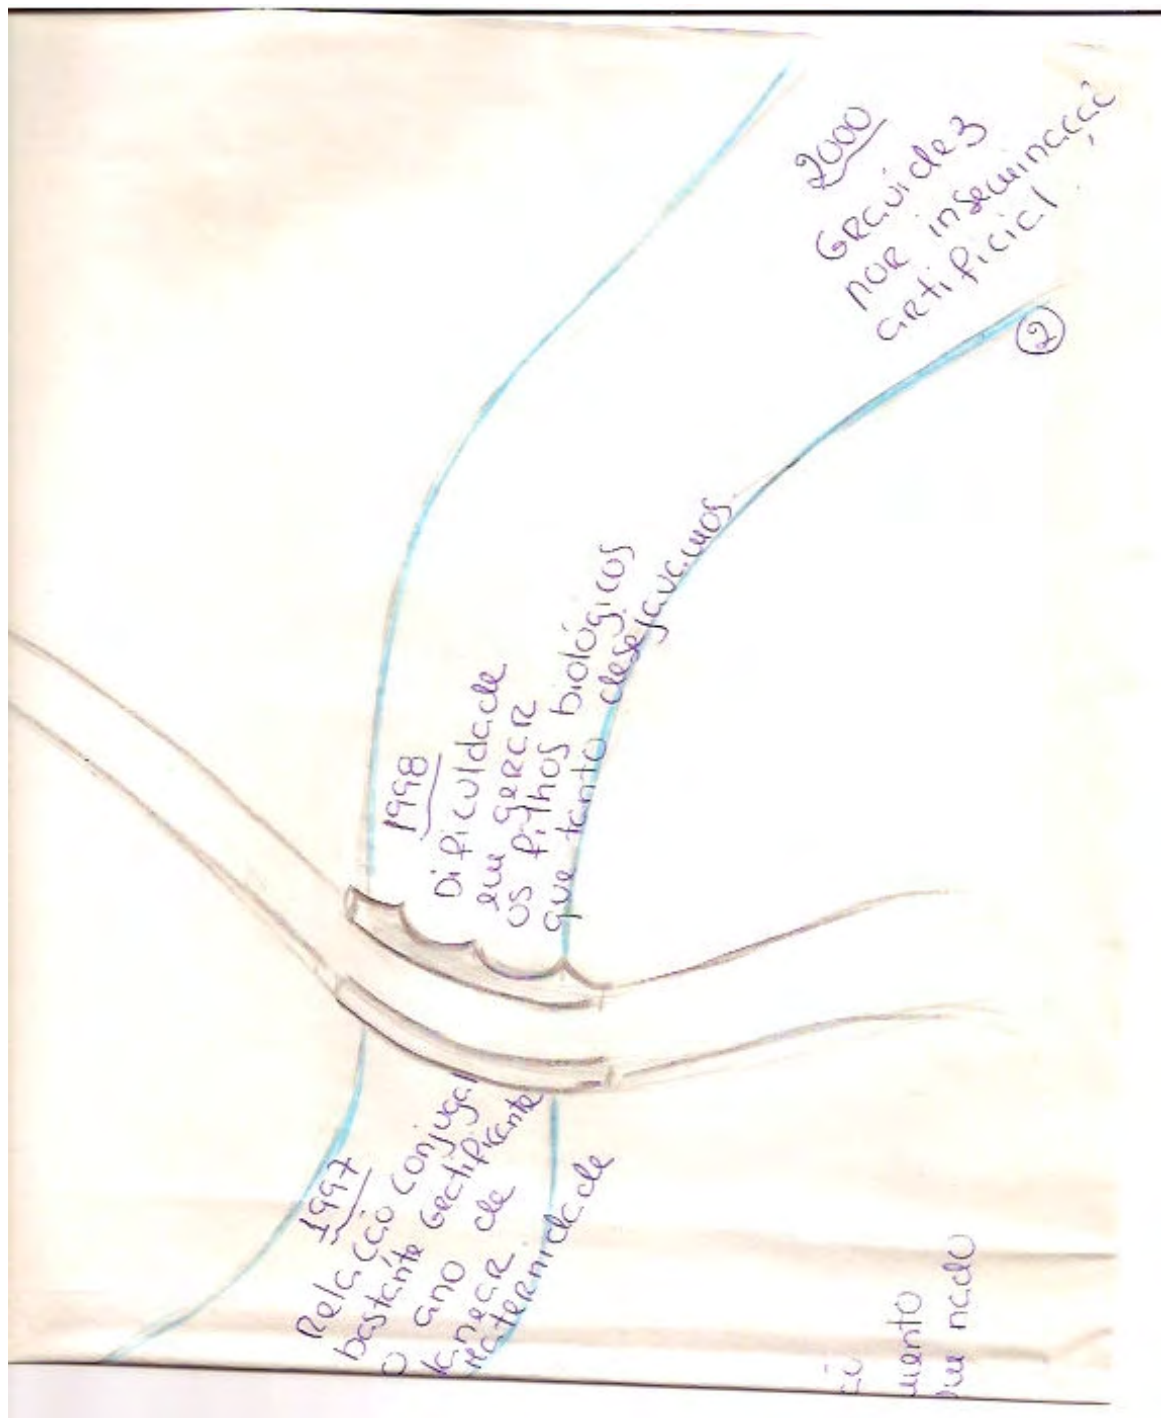 1997
Relação conjugal
bastante Gratificante
O ano de
lanear
maternidade
1998
Dificuldade
em gerar
os filhos biológicos
que tanto desejavamos.
2000
Gravidez
por inseminaçã
artificial.
2
mento
nado